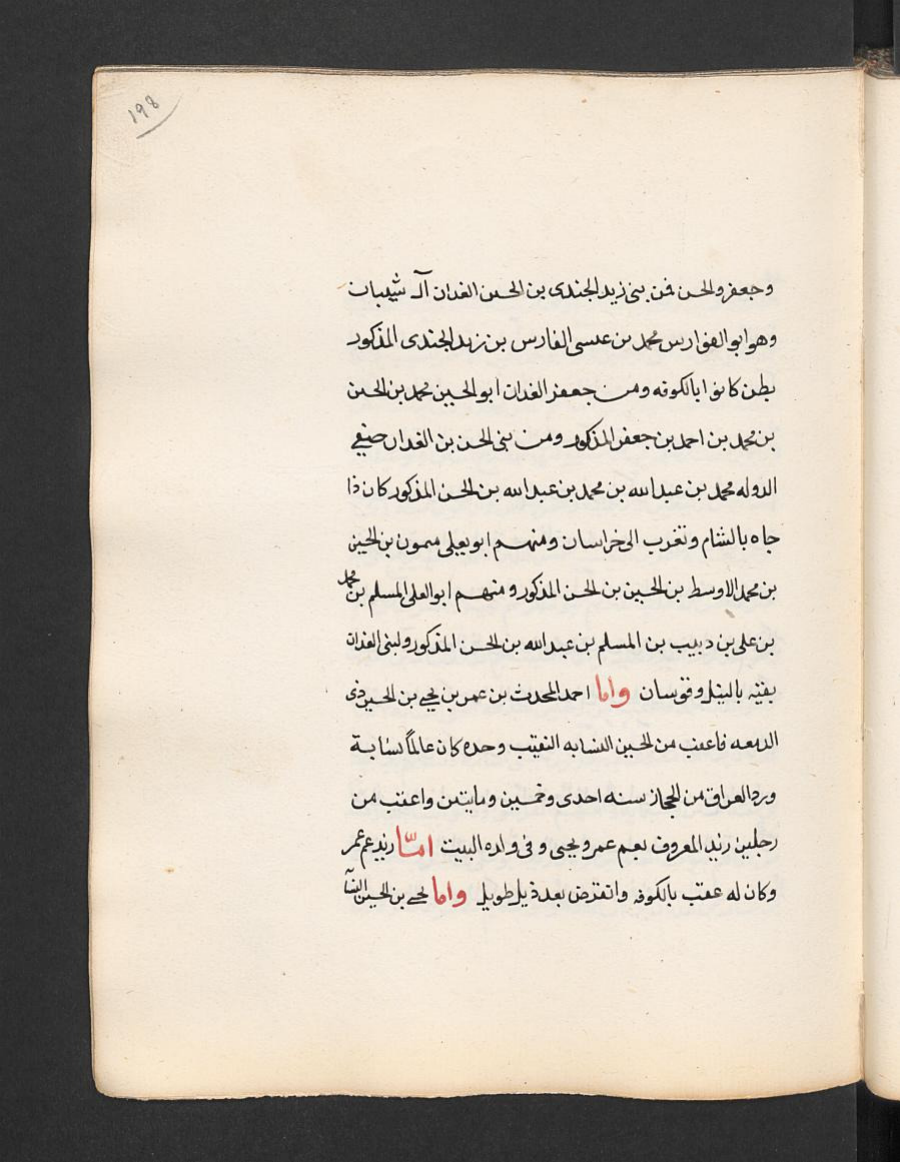 198
وجعفر والحسن فمن بنى زيد الجندى بن الحسن الفدان آل شيبات
وهو ابو الفوارس محمد بن عيسى الفارس بن زيد الجندى المذكور
بطن كانوا بالكوفه ومن جعفر الفدان ابو الحسين محمد بن الحسن
بن محمد بن احمد بن جعفر المذكور ومن بنى الحسن بن الفدان صفي
الدوله محمد بن عبد الله بن محمد بن عبد الله بن الحسن المذكور كان ذا
جاه بالشام وتغرب الى خراسان ومنهم ابو يعلى ميمون بن الحسين
بن محمد الاوسط بن الحسين بن الحسن المذكور ومنهم ابو العلى المسلم بن محمد
بن على بن دبيب بن المسلم بن عبد الله بن الحسن المذكور ولبنى الفدان
بقيه بالنيل وقوسان واما احمد المحدث بن عمر بن يحيى بن الحسين ذى
الدمعه فاعقب من الحسين النسابه النقيب وحده كان عالماً نسابة
ورد العراق من الحجاز سنه احدى وخمسين ومايتين واعقب من
رجلين زيد المعروف بعم عمر ويحيى وفى ولده البيت امّا زيد عم عمر
وكان له عقب بالكوفه وانقرض بعد ذيل طويل واما يحيى بن الحسين